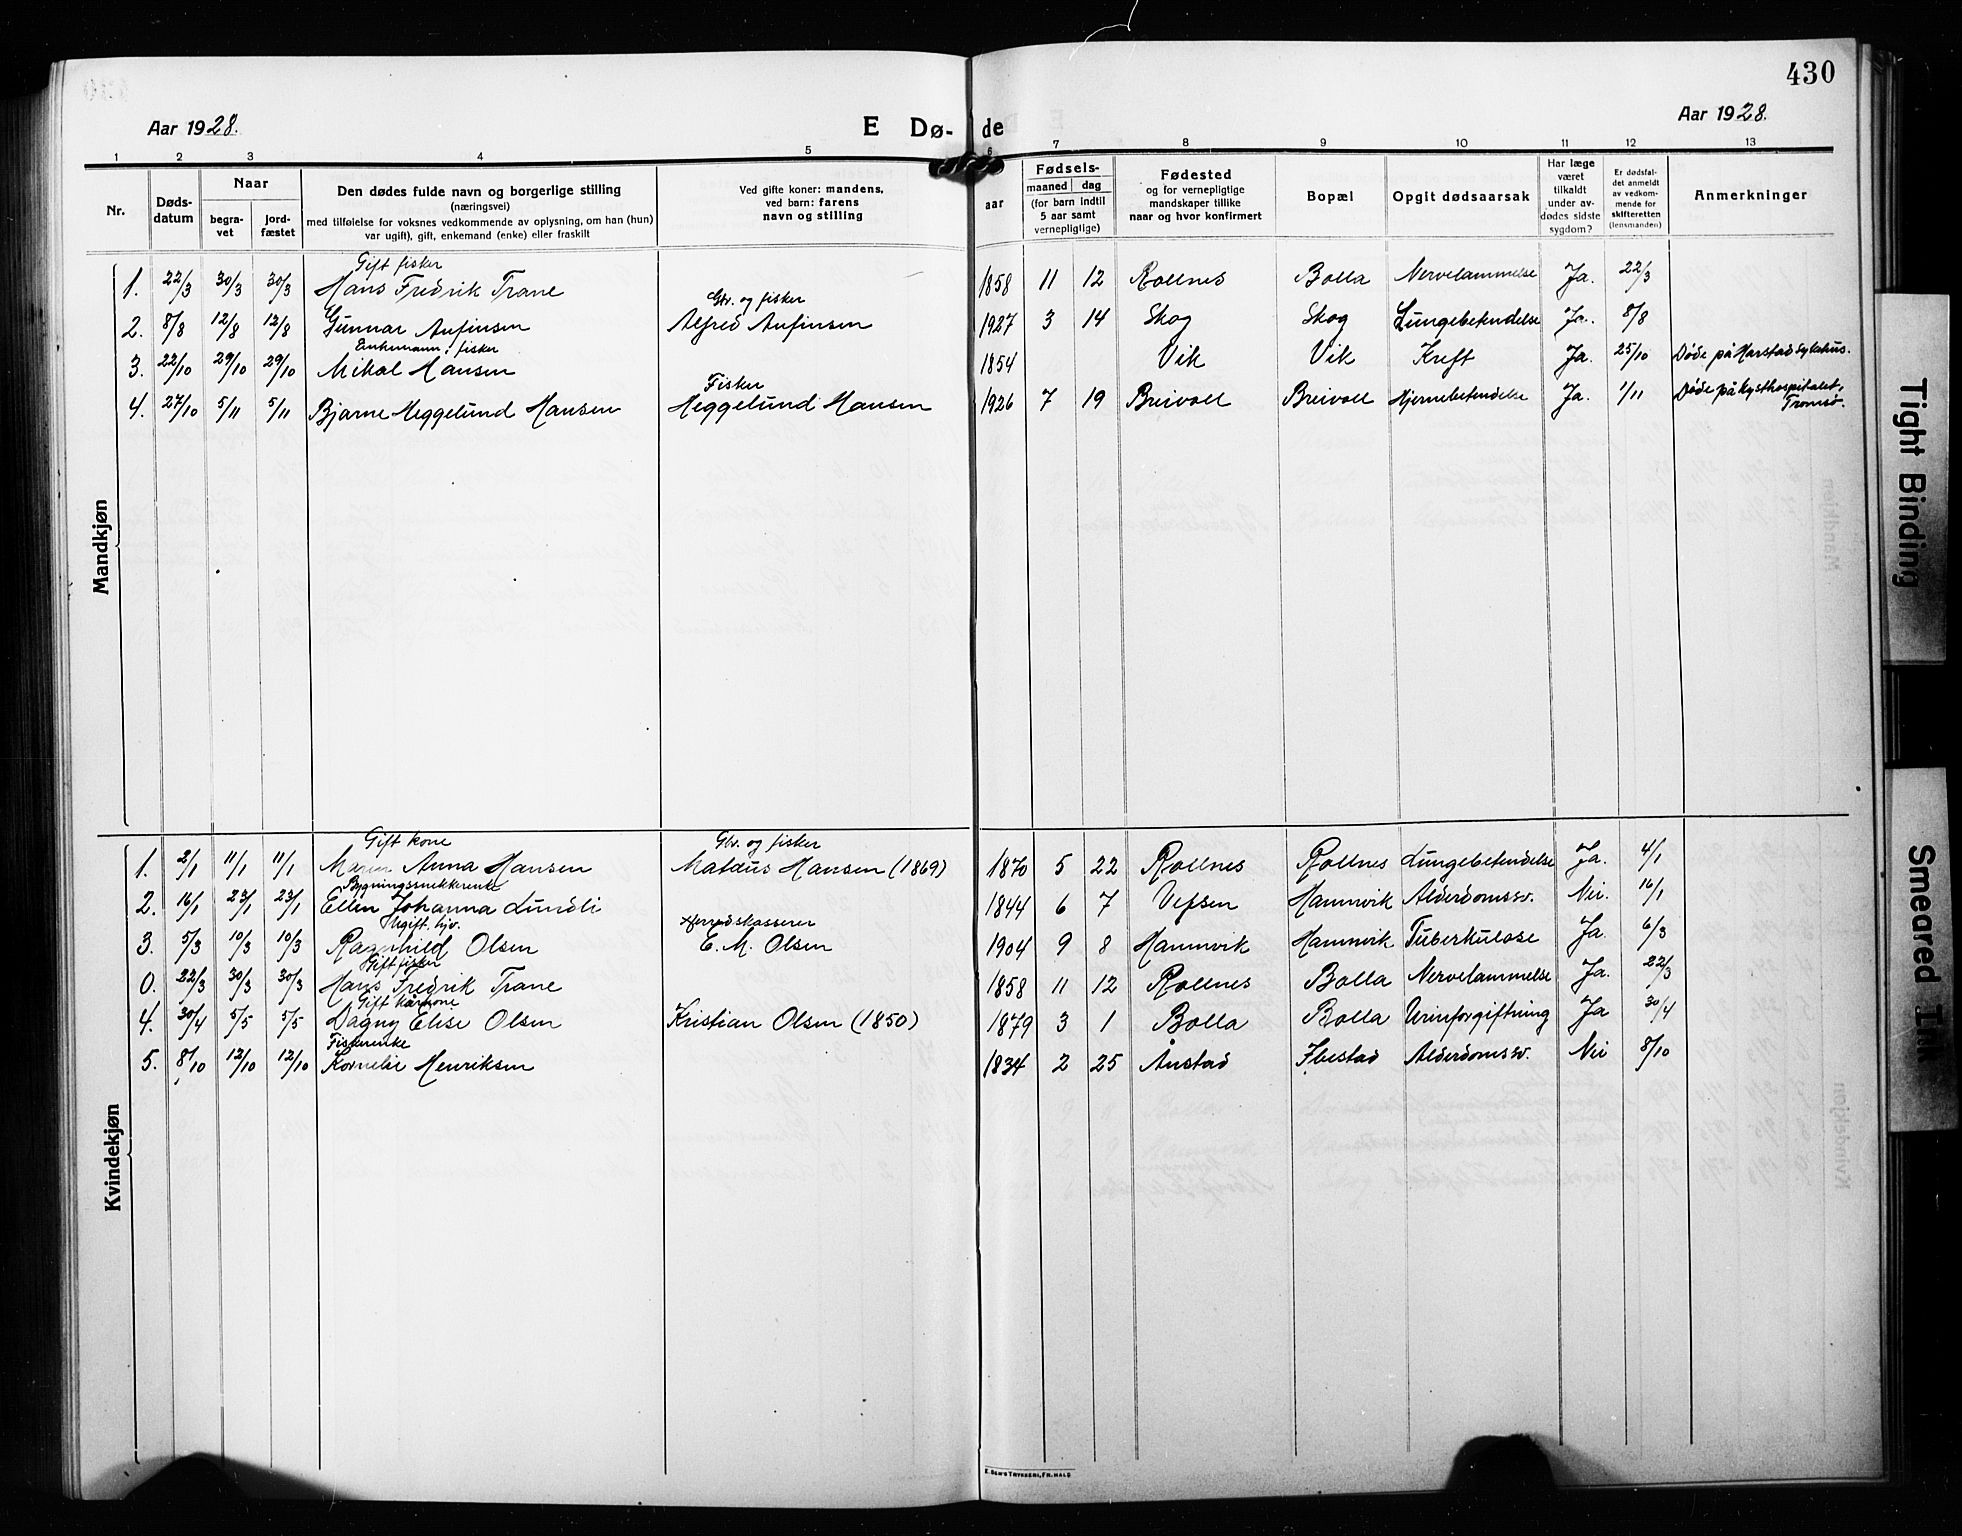 430
Aar 1928.
E Dø-
de
Aar 1928.
1 2 3 4 5 6 7 8 9 10 11 12 13
Nr.
Døds-
datum
Naar
begra-
vet
jord-
fæstet
Den dødes fulde navn og borgerlige stilling
(næringsvei)
med tilføielse for voksnes vedkommende av oplysning, om han (hun)
var ugift), gift, enkemand (enke) eller fraskilt
Ved gifte koner: mandens,
ved barn: farens
navn og stilling
aar
Fødsels-
maaned dag
(for barn indtil
5 aar samt
vernepligtige)
Fødested
og for vernepligtige
mandskaper tillike
naar og hvor konfirmert
Bopæl
Opgit dødsaarsak
Har læge
været
tilkaldt
under av-
dødes sidste
sygdom?
Er dødsfal-
det anmeldt
av vedkom-
mende for
skifteretten
(lensmanden)
Anmerkninger
Mandkjøn
Gift fisker
1. 22/3 30/3 30/3 Hans Fredrik Trane 1858 11 12 Rollnes Bolla Nervelammelse Ja. 22/3
Gbr. og fisker
2. 8/8 12/8 12/8 Gunnar Anfinsen Alfred Anfinsen 1927 3 14 Skog Skog Lungebetendelse Ja. 8/8
Enkemann, fisker
3. 22/10 29/10 29/10 Mikal Hansen 1854 Vik Vik Kreft Ja. 25/10 Døde på Harstad sykehus.
Fisker
4. 27/10 5/11 5/11 Bjarne Heggelund Hansen Heggelund Hansen 1926 7 19 Breivoll Breivoll Hjernebetendelse Ja. 1/11 Døde på Kysthospitalet,
Tromsø.
Kvindekjøn
Gift kone Gbr. og fisker
1. 2/1 11/1 11/1 Maren Anna Hansen Mataus Hansen (1869) 1870 5 22 Rollnes Rollnes Lungebetendelse Ja. 4/1
Bygningssnekkerenke
2. 16/1 23/1 23/1 Ellen Johanna Lundli 1844 6 7 Vefsen Hamnvik Alderdomssv. Nei. 16/1
Ugift, hjv. Herredskasserer
3. 5/3 10/3 10/3 Ragnhild Olsen E. M. Olsen 1904 9 8 Hamnvik Hamnvik Tuberkulose Ja. 6/3
Gift fisker
0. 22/3 30/3 30/3 Hans Fredrik Trane 1858 11 12 Rollnes Bolla Nervelammelse Ja. 22/3
Gift kårkone
4. 30/4 5/5 5/5 Dagny Elise Olsen Kristian Olsen (1850) 1879 3 1 Bolla Bolla Urinforgiftning Ja 30/4
Fiskerenke
5. 8/10 12/10 12/10 Kornelie Henriksen 1834 2 25 Ånstad Ibestad Alderdomssv. Nei 8/10
E. SEM'S TRYKKERI, FR.HALD
Tight Binding
Smeared Ink